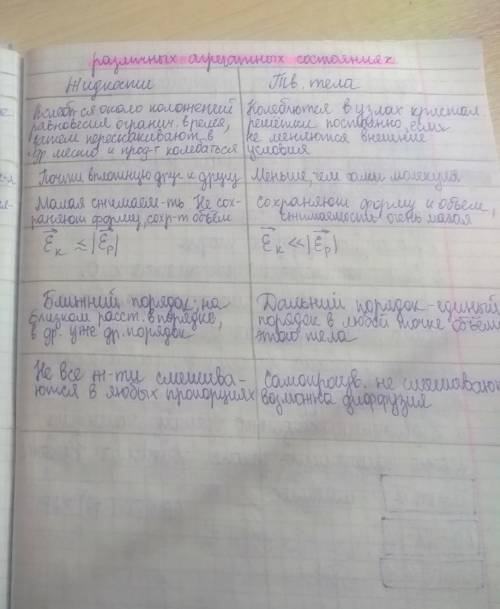 различных агрегатных состояниях
Жидкости
Тв. тела
Колебл-ся около положений
равновесия огранич. время,
затем перескакивают в
др. место и прод-т колебаться
Колеблются в узлах кристал
решётки постоянно, если
не меняются внешние
условия
Почти вплотную друг к другу
Меньше, чем сами молекулы
Малая сжимаем-ть. Не сох-
раняют форму, сохр-т объём
сохраняют форму и объём,
сжимаемость очень малая
E⃗к ≤ |E⃗р|
E⃗к ≪ |E⃗р|
Ближний порядок: на
близком расст. в порядке,
в др. уже др. порядок
Дальний порядок - единый
порядок в любой точке объёма
этого тела
Не все ж-ти смешива-
ются в любых пропорциях
Самопроизв. не смешивают
возможна диффузия